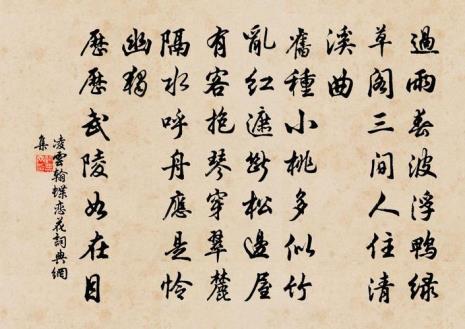 過雨春波浮鴨綠
草閣三間人住清
溪曲
舊種小桃多似竹
亂紅遮斷松邊屋
有客抱琴穿翠麓
隔水呼舟應是憐
幽獨
歷歷武陵如在目
凌雲翰蝶戀花詞典網
集